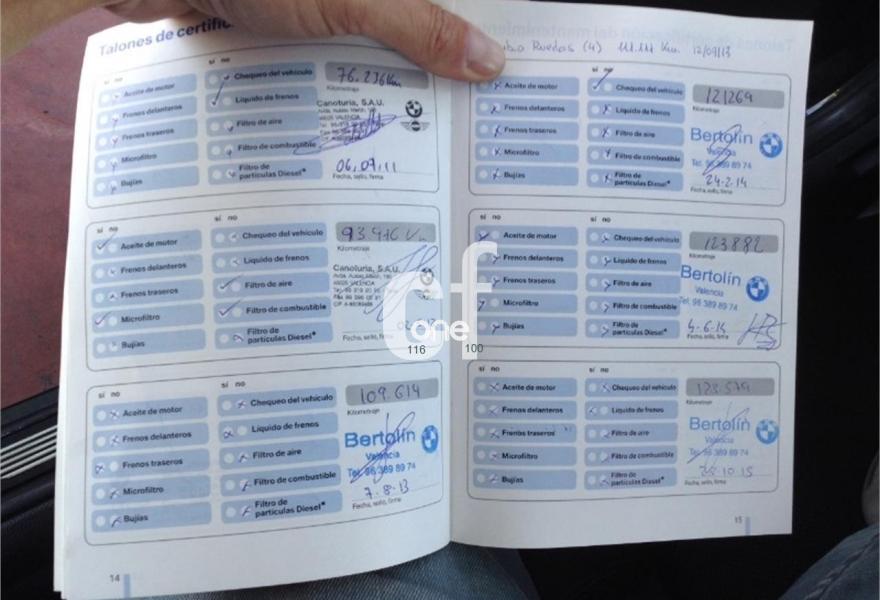 Talones de certific
sí no sí no
Aceite de motor Chequeo del vehículo 76.236 Km
Kilometraje
Frenos delanteros Líquido de frenos
Canoturia, S.A.U.
Frenos traseros Filtro de aire
Microfiltro Filtro de combustible
Bujías Filtro de
partículas Diesel*
06,07,11
Fecha, sello, firma
sí no sí no
Aceite de motor Chequeo del vehículo
Kilometraje
Frenos delanteros Líquido de frenos
Canoturia, S.A.U.
Frenos traseros Filtro de aire
Microfiltro Filtro de combustible
Bujías Filtro de
partículas Diesel*
Fecha, sello, firma
sí no sí no
Aceite de motor Chequeo del vehículo 109.614
Kilometraje
Frenos delanteros Líquido de frenos
Bertolín
Valencia
Tel. 96 389 89 74
Frenos traseros Filtro de aire
Microfiltro Filtro de combustible
7-8-13
Bujías Filtro de
partículas Diesel*
Fecha, sello, firma
14
Ruedas (4) 111.111 Km. 12/09/13
sí
Aceite de motor Chequeo del vehículo 121269
Kilometraje
Frenos delanteros Líquido de frenos
Bertolín
Valencia
Tel. 96 389 89 74
Frenos traseros Filtro de aire
Microfiltro Filtro de combustible
24-2-14
Bujías Filtro de
partículas Diesel*
Fecha, sello, firma
sí no sí no
Aceite de motor Chequeo del vehículo 123882
Kilometraje
Frenos delanteros Líquido de frenos
Bertolín
Valencia
Tel. 96 389 89 74
Frenos traseros Filtro de aire
Microfiltro Filtro de combustible
4-6-14
Bujías Filtro de
partículas Diesel*
Fecha, sello, firma
sí no sí no
Aceite de motor Chequeo del vehículo
Kilometraje
Frenos delanteros Líquido de frenos
Bertolín
Valencia
Tel. 96 389 89 74
Frenos traseros Filtro de aire
Microfiltro Filtro de combustible
Bujías Filtro de
partículas Diesel*
Fecha, sello, firma
15
cf
one
116 100